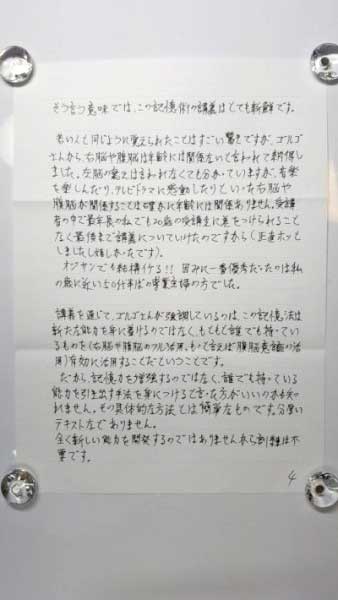 そう言う意味では、この記憶術の講義はとても新鮮です。
若い人と同じように覚えられたことはすごい驚きですが、ゴルゴ
さんから、右脳や腹脳は年齢には関係ないと言われて納得し
ました。左脳の衰えは言われなくても分かっていますが、音楽
を楽しんだり、テレビドラマに感動したりといった右脳や
腹脳が関係することは確かに年齢には関係ありません。受講
者の中で最年長の私でも20歳の受講生に差をつけられること
なく最後まで講義についていけたのですから(正直ホッと
しましたし嬉しかったです)
オジサンでも結構行ける!! 因みに一番優秀だったのは私
の歳に近い50代半ばの専業主婦の方でした。
講義を通じて、ゴルゴさんが強調しているのは、この記憶法は
新たな能力を身に着けるのではなく、もともと誰でも持ってい
るものを(右脳や腹脳のフル活用、もって言えば腹脳意識の活
用)有効に活用することだということです。
だから、記憶力を増強するのではなく、誰でも持っている
能力を引き出す手法を身につけると言った方がいいのかも知
れません。その具体的な方法としては簡単なものです。分厚い
テキストなどありません。
全く新しい能力を開発するのではありませんから割錐は不
要です。
4